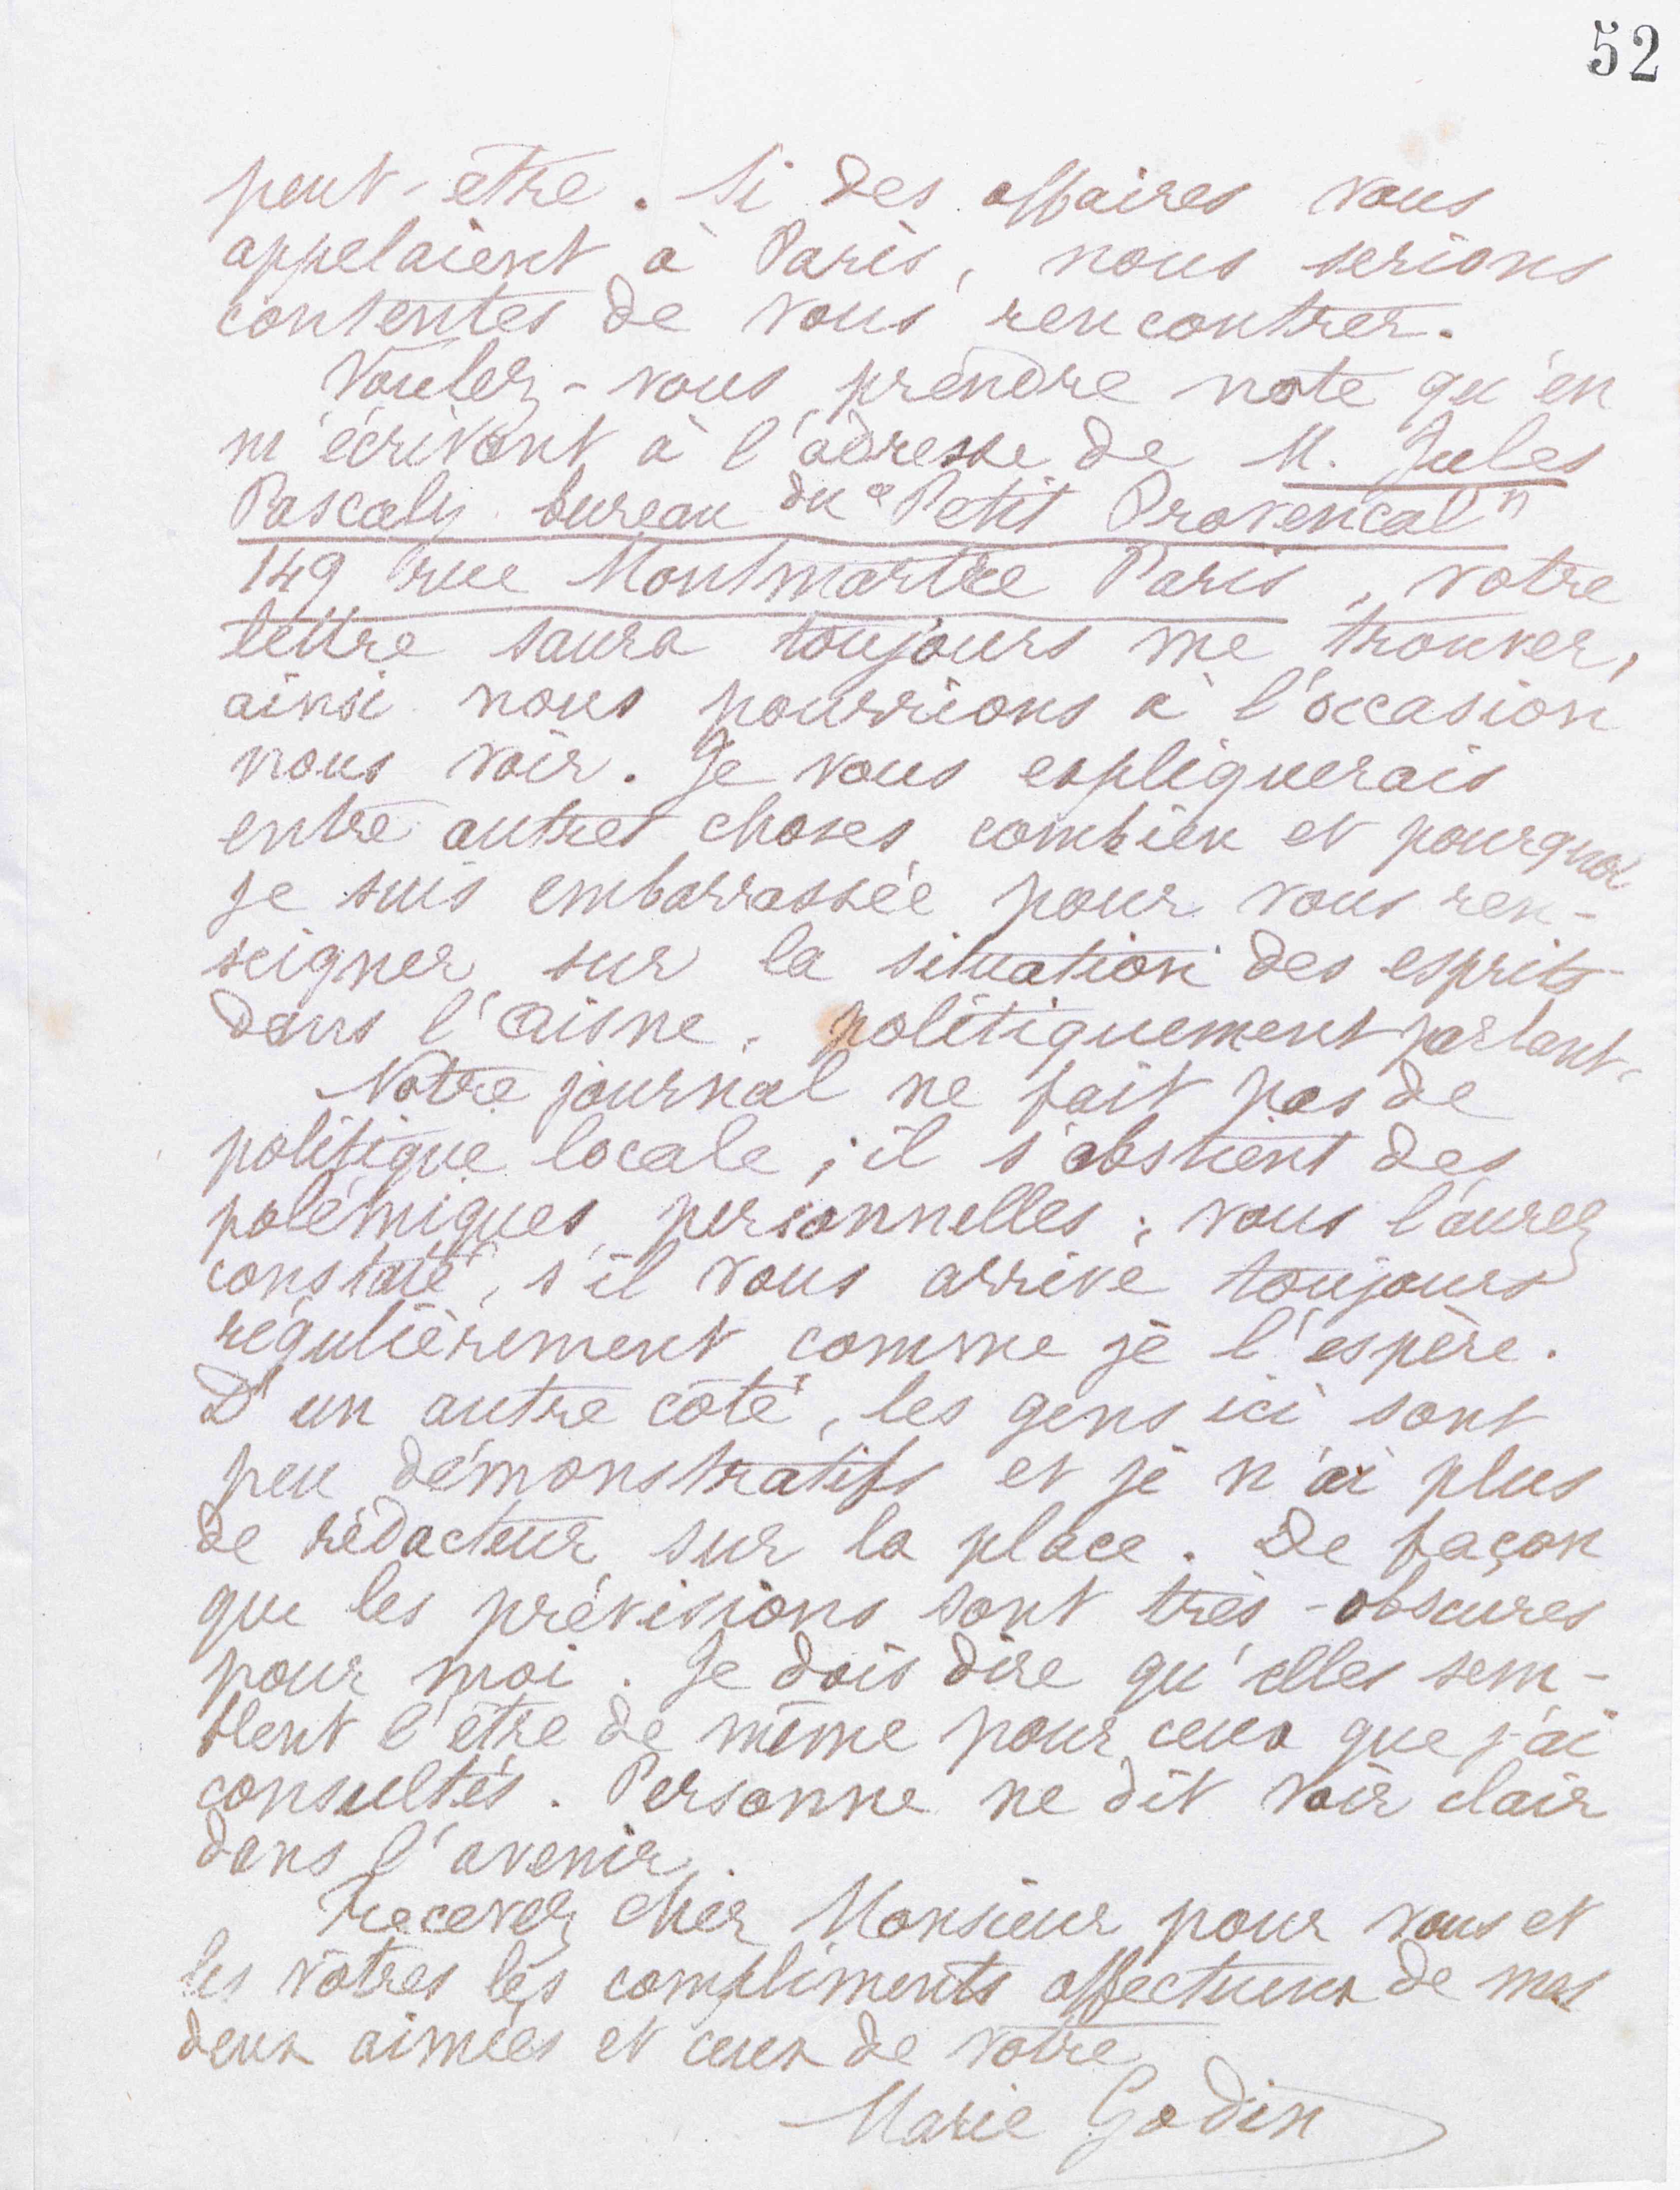 52
peut-être. Si des affaires vous
appelaient à Paris, nous serions
contentes de vous rencontrer.
Voulez-vous prendre note qu'en
m'écrivant à l'adresse de M. Jules
Pascaly bureau du "Petit Provencal"
149 rue Montmartre Paris, votre
lettre saura toujours me trouver,
ainsi nous pourrions à l'occasion
nous voir. Je vous expliquerais
entre autres choses combien et pourquoi
je suis embarrassée pour vous ren-
seigner sur la situation des esprits
dans l'Aisne, politiquement parlant.
Notre journal ne fait pas de
politique locale ; il s'abstient des
polémiques personnelles ; vous l'aurez
constaté, s'il vous arrive toujours
régulièrement comme je l'espère.
D'un autre côté, les gens ici sont
peu démonstratifs et je n'ai plus
de rédacteur sur la place. De façon
que les prévisions sont très-obscures
pour moi. Je dois dire qu'elles sem-
blent l'être de même pour ceux que j'ai
consultés. Personne ne dit voir clair
dans l'avenir.
Recevez cher Monsieur pour vous et
les vôtres les compliments affectueux de mes
deux aimées et ceux de votre
Marie Godin